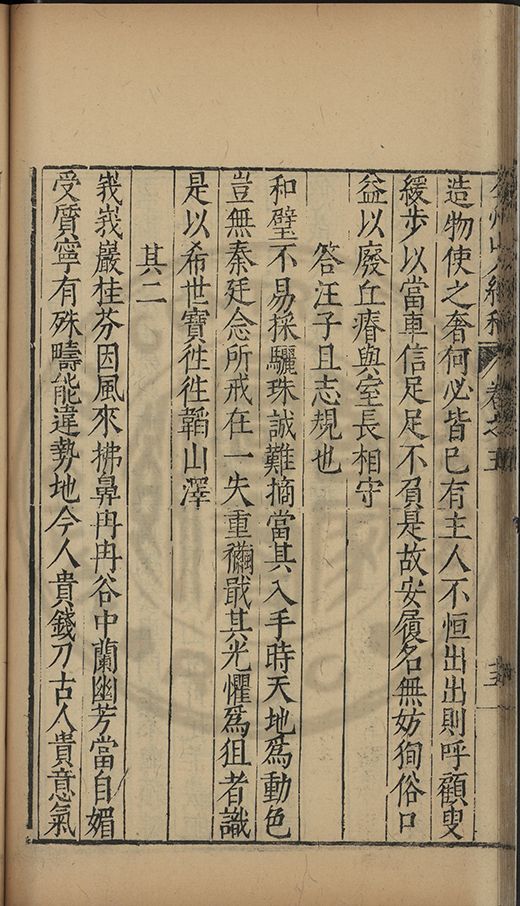 造物使之奢何必皆已有主人不恒出出則呼顧叟
緩步以當車信足足不負是故安履名無妨狥俗口
益以廢丘瘠與室長相守
答汪子且志規也
和璧不易採驪珠誠難摘當其入手時天地爲動色
豈無秦廷念所戒在一失重襺戢其光懼爲狙者識
是以希世寶徃徃韜山澤
其二
峩峩巖桂芬因風來拂鼻冉冉谷中蘭幽芳當自媚
受質寧有殊疇能違勢地今人貴錢刀古人貴意氣